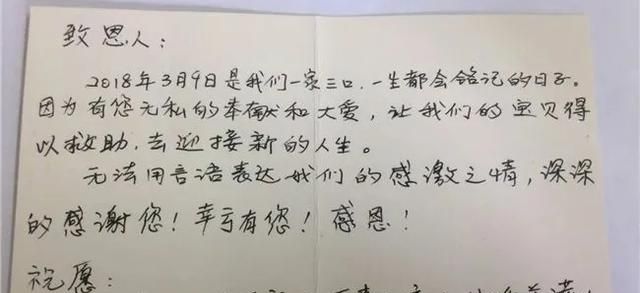 致恩人：
2018年3月9日是我们一家三口，一生都会铭记的日子。
因为有您无私的奉献和大爱，让我们的宝贝得
以救助，去迎接新的人生。
无法用言语表达我们的感激之情，深深
的感谢您！幸亏有您！感恩！
祝愿：